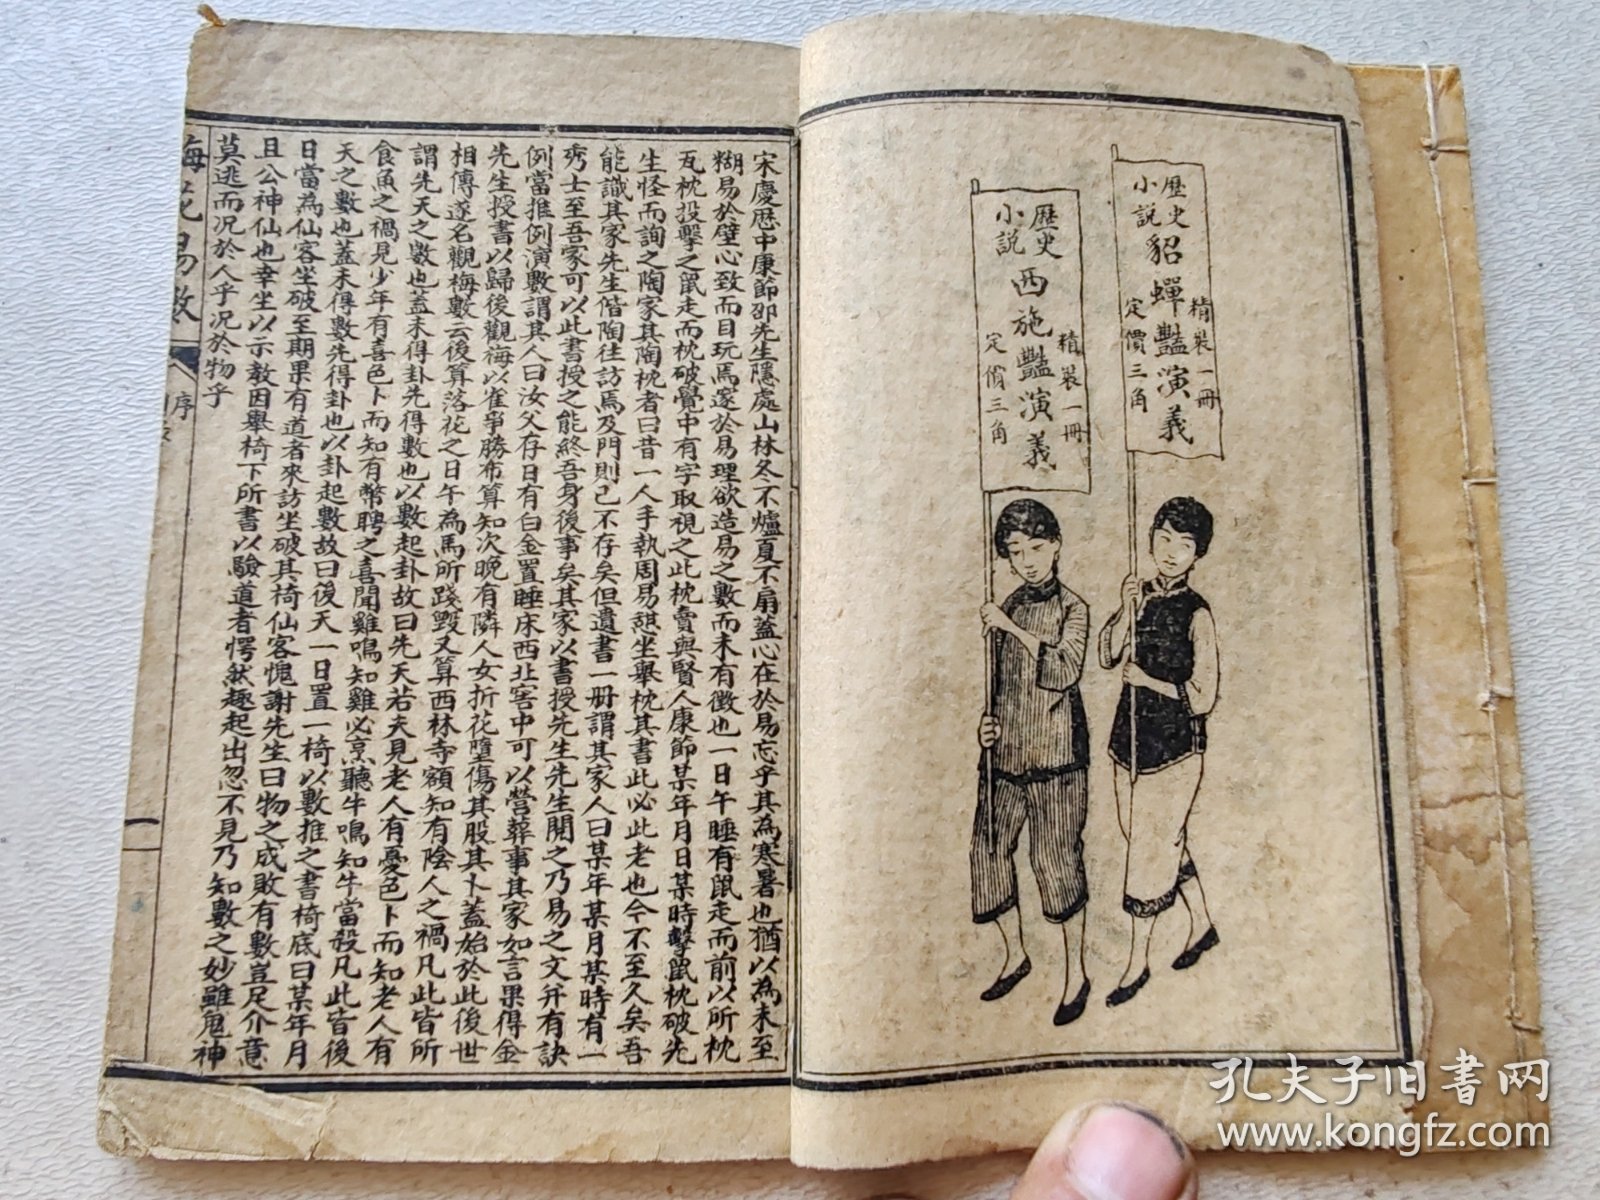 歷史
小説
貂蟬豔演義
精裝一冊
定價三角
歷史
小説
西施豔演義
精裝一冊
定價三角
宋慶歴中康節邵先生隱處山林冬不爐夏不扇蓋心在於易忘乎其為寒暑也猶以為未至
糊易於壁心致而目玩焉邃於易理欲造易之數而未有徵也一日午睡有鼠走而前以所枕
瓦枕投擊之鼠走而枕破覺中有字取視之此枕賣與賢人康節某年月日某時擊鼠枕破先
生怪而詢之陶家其陶枕者曰昔一人手執周易憇坐舉枕其書此必此老也今不至久矣吾
能識其家先生偕陶往訪焉及門則已不存矣但遺書一册謂其家人曰某年某月某時有一
秀士至吾家可以此書授之能終吾身後事矣其家以書授先生先生閱之乃易之文并有訣
例當推例演數謂其人曰汝父存日有白金置睡床西北窖中可以營葬事其家如言果得金
先生授書以歸後觀梅以雀爭勝布算知次晚有隣人女折花墮傷其股其卜蓋始於此後世
相傳遂名觀梅數云後算落花之日午為馬所踐毀又算西林寺額知有陰人之禍凡此皆所
謂先天之數也蓋未得卦先得數也以數起卦故曰先天若夫見老人有憂色卜而知老人有
食魚之禍見少年有喜色卜而知有幣聘之喜聞雞鳴知雞必烹聽牛鳴知牛當殺凡此皆後
天之數也蓋未得數先得卦也以卦起數故曰後天一日置一椅以數推之書椅底曰某年月
日當為仙客坐破至期果有道者來訪坐破其椅仙客愧謝先生曰物之成敗有數豈足介意
且公神仙也幸坐以示教因舉椅下所書以驗道者愕然趨起出忽不見乃知數之妙雖鬼神
莫逃而况於人乎况於物乎
梅花易數
序
一
孔夫子旧书网
www.kongfz.com